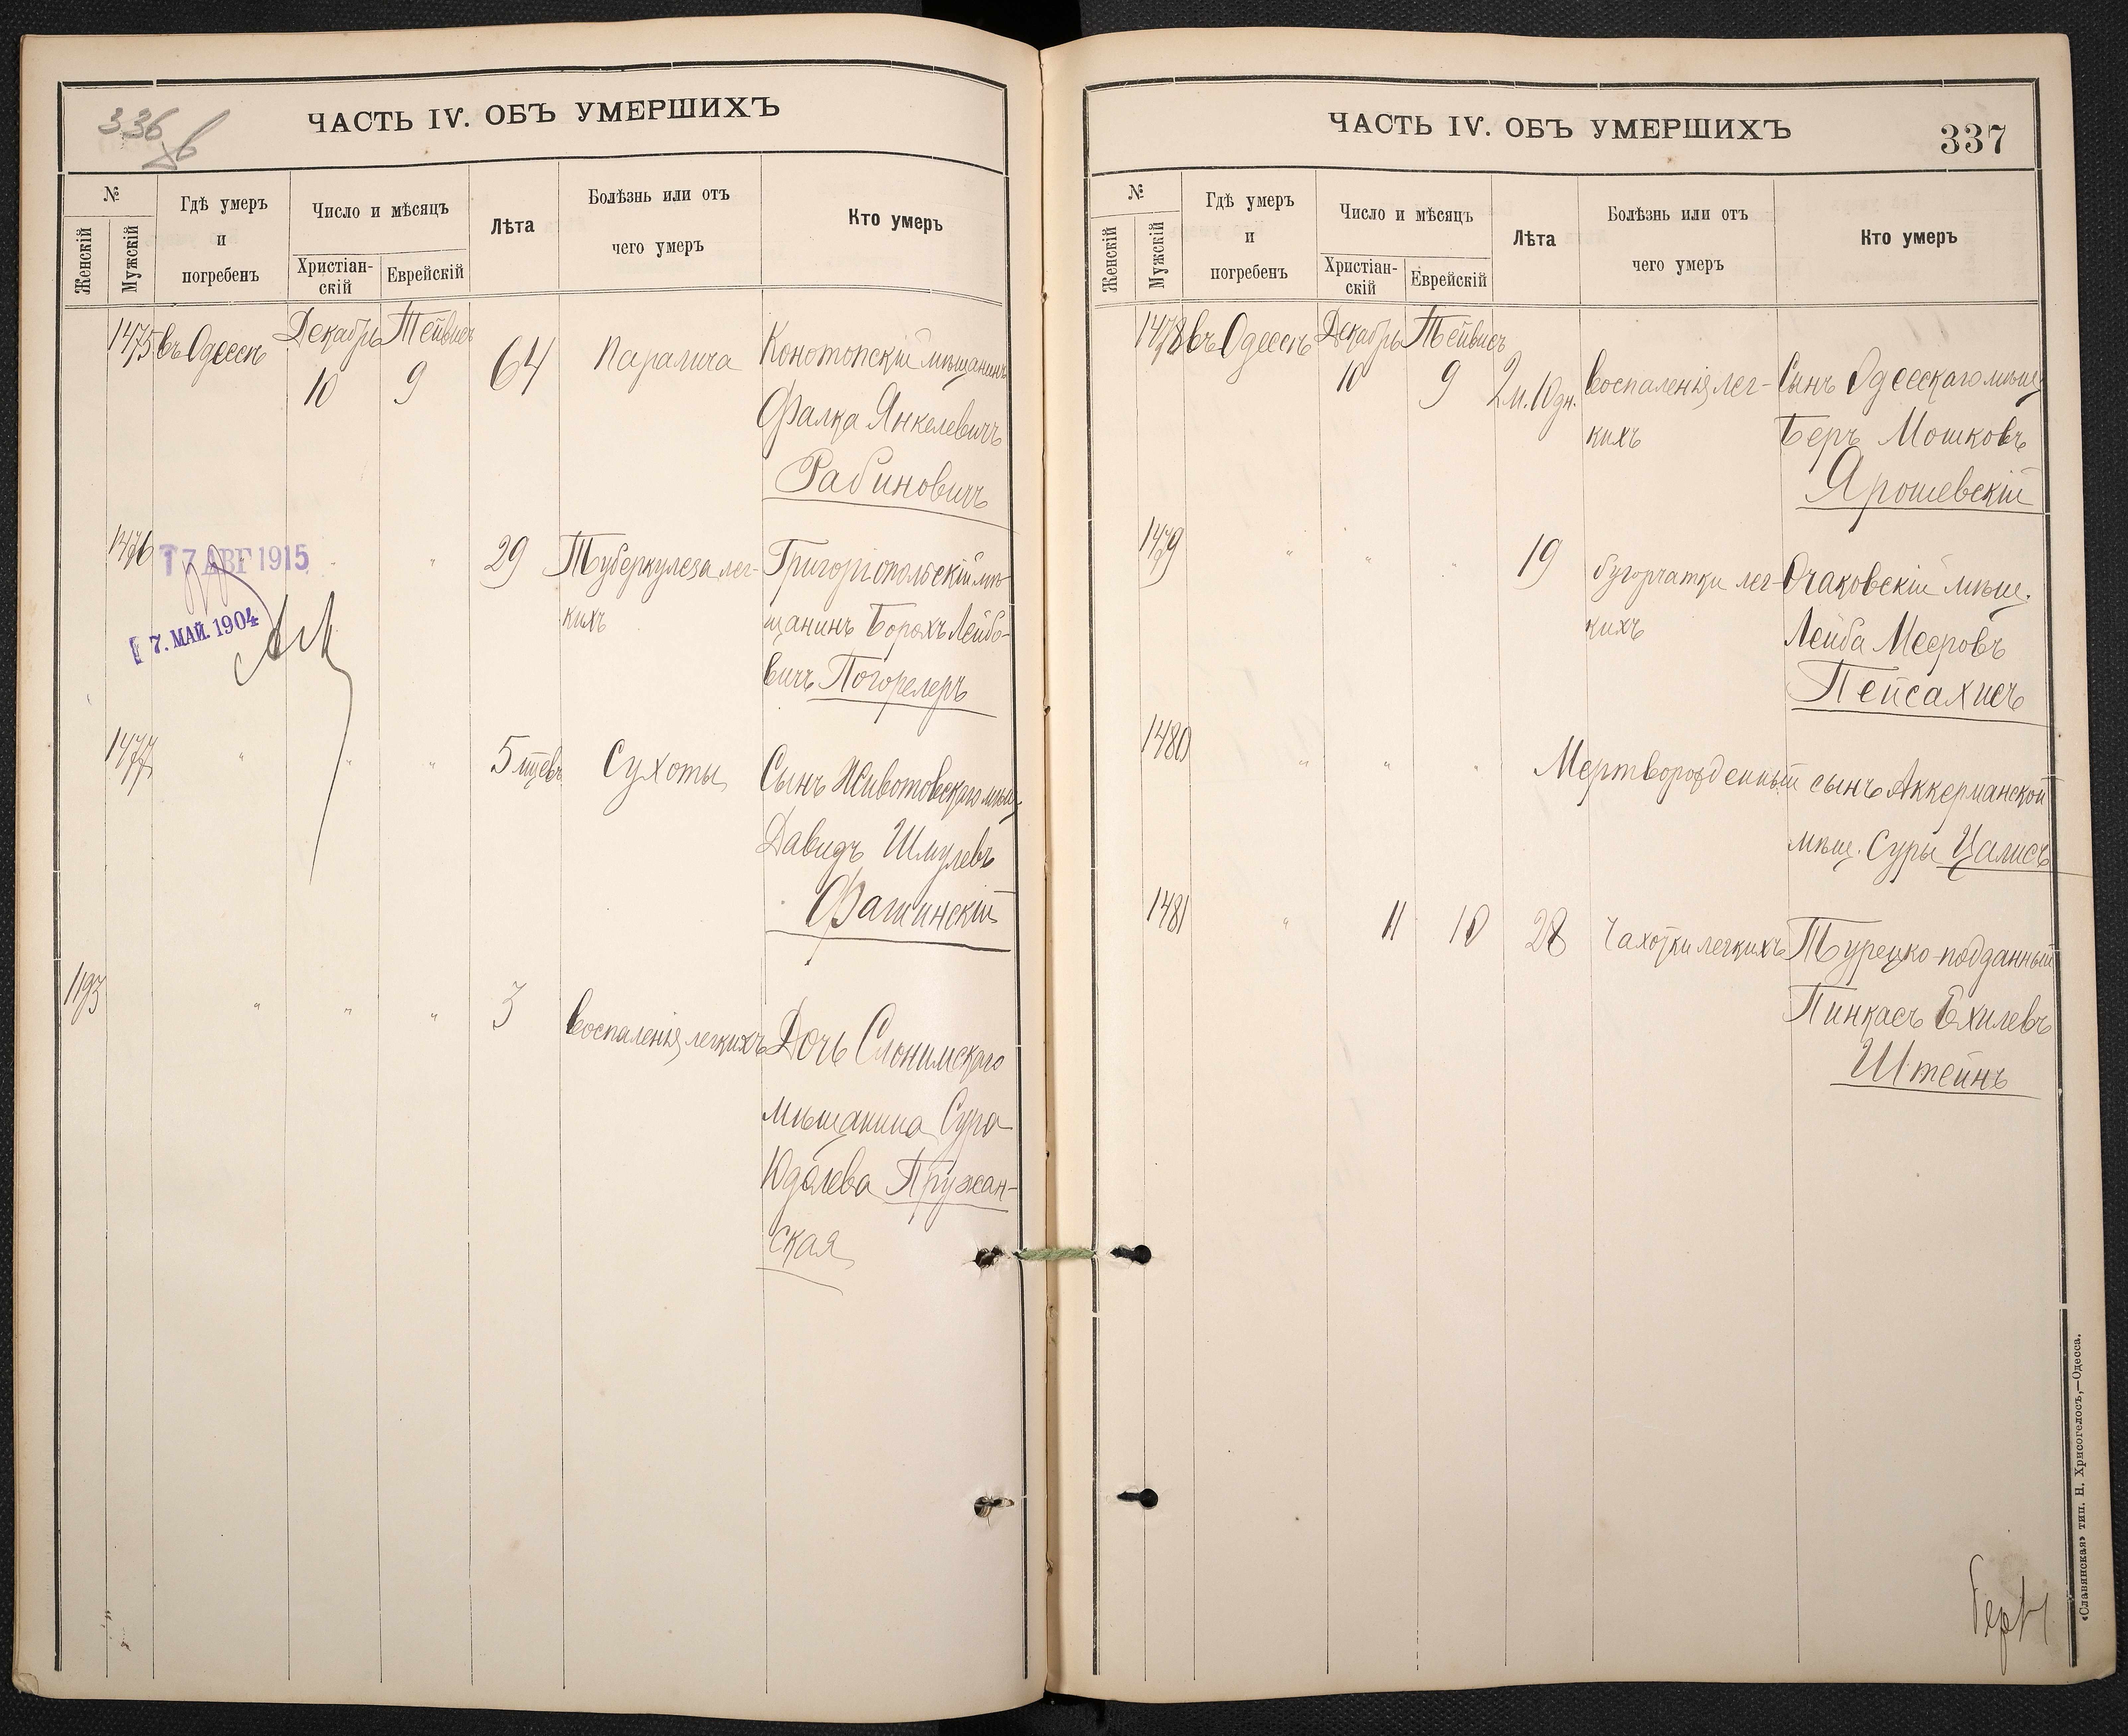 336
ЧАСТЬ IV. ОБЪ УМЕРШИХЪ
№
Женскій
Мужскій
Гдѣ умеръ
и
погребенъ
Число и мѣсяцъ
Христіан-
скій
Еврейскій
Лѣта
Болѣзнь или отъ
чего умеръ
Кто умеръ
1475 въ Одессѣ Декабрь Тейвисъ
10 9 64 Паралича Конотопскій мѣщанинъ
Фалка Янкелевичъ
Рабиновичъ
1476 " " 29 Туберкулеза лег- Григоріопольскій мѣ-
кихъ щанинъ Борохъ Лейбо-
вичъ Погорелеръ
17 АВГ 1915
7. МАЙ. 1904
1477 " " " 5 мцевъ Сухоты Сынъ Животовскаго мѣщ.
Давидъ Шмулевъ
Фашинскій
1193 " " " 3 Воспаленія легкихъ Дочь Слонимскаго
мѣщанина Сура
Юделева Пружан-
ская
ЧАСТЬ IV. ОБЪ УМЕРШИХЪ
337
№
Женскій
Мужскій
Гдѣ умеръ
и
погребенъ
Число и мѣсяцъ
Христіан-
скій
Еврейскій
Лѣта
Болѣзнь или отъ
чего умеръ
Кто умеръ
1478 въ Одессѣ Декабрь Тейвисъ
10 9 2 м. 10 дн. Воспаленія лег- Сынъ Одесскаго мѣщ.
кихъ Беръ Мошковъ
Ярошевскій
1479 " " " 19 бугорчатки лег- Очаковскій мѣщ.
кихъ Лейба Мееровъ
Пейсахисъ
1480 " " " Мертворожденный сынъ Аккерманской
мѣщ. Суры Цалисъ
1481 " 11 10 28 Чахотки легкихъ Турецко-подданный
Пинкасъ Ехилевъ
Штейнъ
«Славянская» тип. Н. Хрисогелосъ,—Одесса.